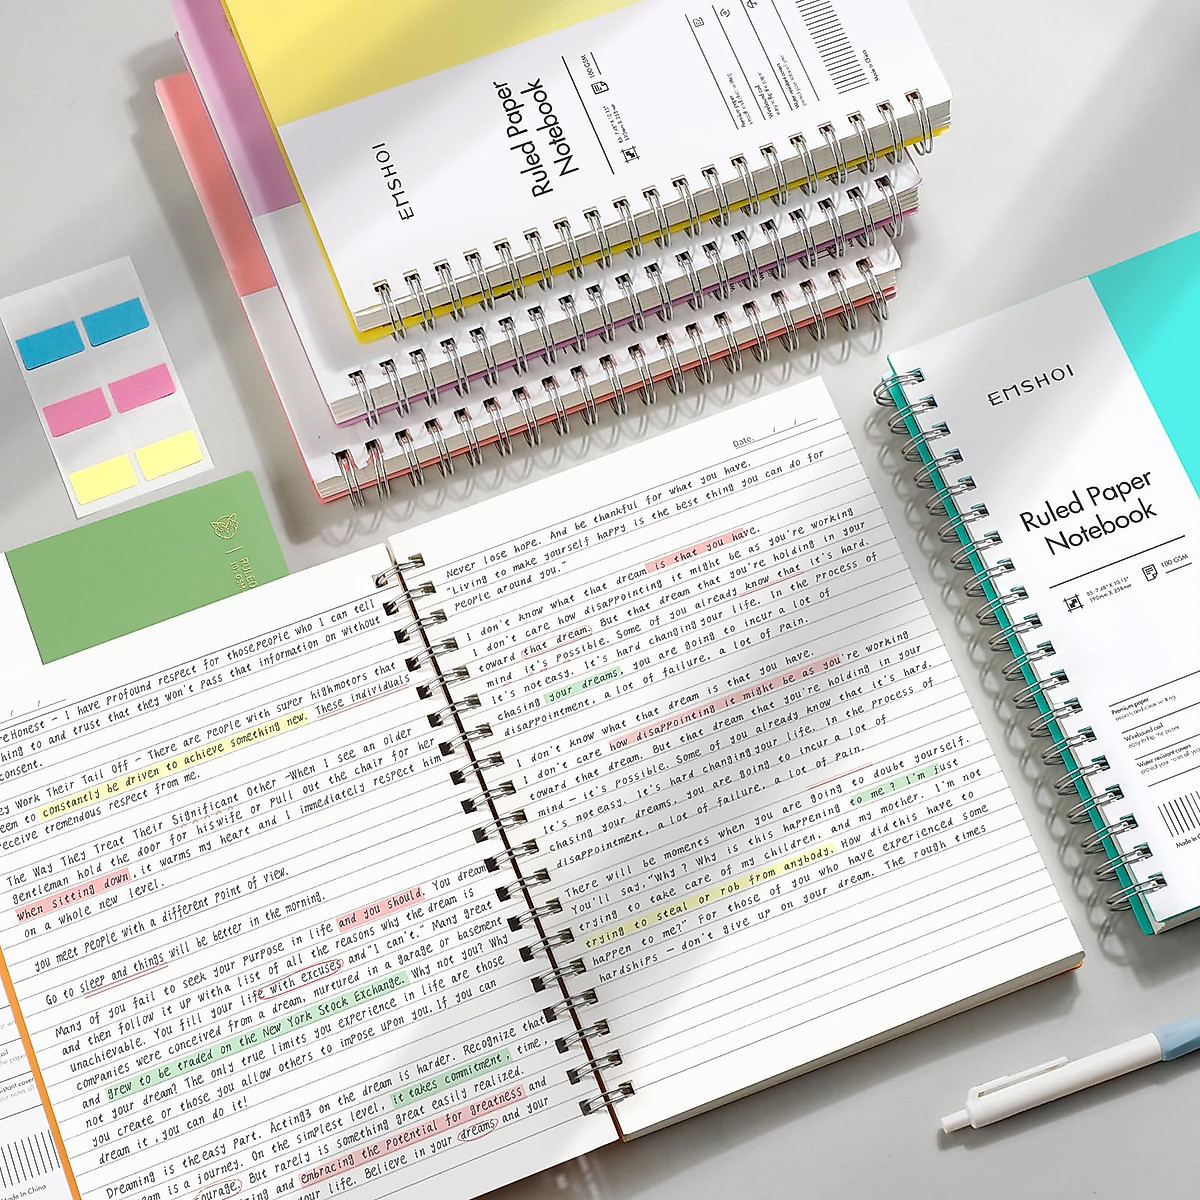 EMSHOI
Ruled Paper
Notebook
100 GSM
Made in China
EMSHOI
Ruled Paper
Notebook
B5-7.48" X 10.15"
190mm X 258mm
100 GSM
Premium paper
Wirebound coil
Water resistant covers
RULED
Date. / /
Never lose hope. And be thankful for what you have.
"Living to make yourself happy is the best thing you can do for
people around you."
I don't know what that dream is that you have.
I don't care how disappointing it might be as you're working
toward that dream. But that dream that you're holding in your
mind it's possible. Some of you already know that it's hard.
It's not easy. It's hard changing your life. In the process of
chasing your dreams, you are going to incur a lot of
disappointment, a lot of failure, a lot of pain.
I don't know what that dream is that you have.
I don't care how disappointing it might be as you're working
toward that dream. But that dream that you're holding in your
mind - it's possible. Some of you already know that it's hard.
It's not easy. It's hard changing your life. In the process of
chasing your dreams, you are going to incur a lot of
disappointment, a lot of failure, a lot of pain.
There will be moments when you are going to doubt yourself.
You'll say,"Why? Why is this happening to me? I'm just
trying to take care of my children, and my mother. I'm not
trying to steal or rob from anybody. How did this have to
happen to me?" For those of you who have experienced some
hardships - don't give up on your dream. The rough times
/ /
Honest - I have profound respect for those people who I can tell
thing to and trust that they won't pass that information on without
consent.
ey Work Their Tail Off - There are people with super high motors that
eem to constantly be driven to achieve something new. These individuals
receive tremendous respect from me.
The Way They Treat Their Significant Other -When I see an older
gentleman hold the door for his wife or pull out the chair for her
when sitting down, it warms my heart and I immediately respect him
on a whole new level.
you meet people with a different point of view.
Go to sleep and things will be better in the morning.
Many of you fail to seek your purpose in life and you should. You dream
and then follow it up with a list of all the reasons why the dream is
unachievable. You fill your life with excuses and "I can't." Many great
companies were conceived from a dream, nurtured in a garage or basement
and grew to be traded on the New York Stock Exchange. Why not you? Why
not your dream? The only true limits you experience in life are those
you create or those you allow others to impose upon you. If you can
dream it, you can do it!
Dreaming is the easy part. Acting on the dream is harder. Recognize that
am is a journey. On the simplest level, it takes commitment, time,
courage. But rarely is something great easily realized.
ing and embracing the potential for greatness and
your life. Believe in your dreams and your
Made in China